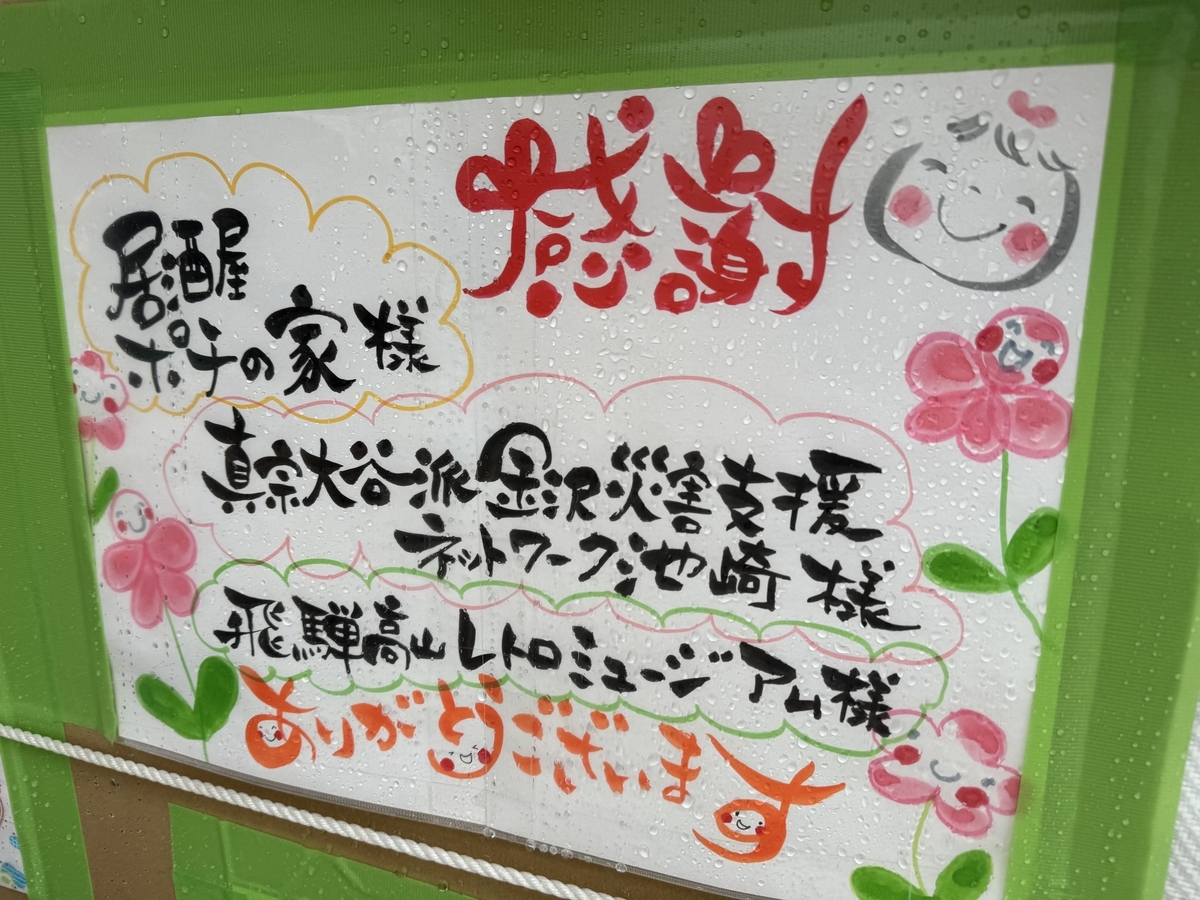 感謝
居酒屋
ポチの家様
真宗大谷派金沢災害支援
ネットワーク池崎様
飛騨高山レトロミュージアム様
ありがとうございます